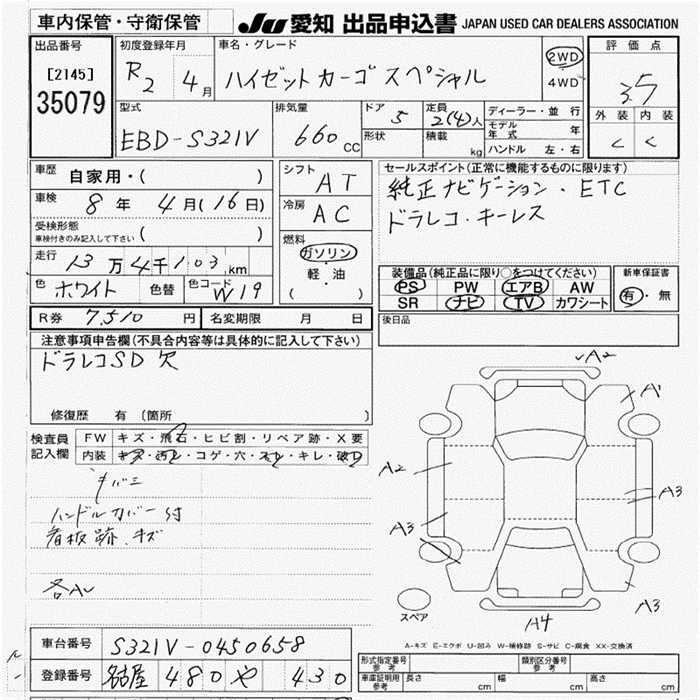 車内保管・守衛保管
JU 愛知 出品申込書 JAPAN USED CAR DEALERS ASSOCIATION
出品番号
[2145]
35079
初度登録年月
R2 4月
車名・グレード
ハイゼットカーゴ スペシャル
2WD
4WD
評価点
3.5
外装 内装
C C
型式
EBD-S321V
排気量
660 CC
ドア
5
定員
2(4)人
形状
積載
kg
ディーラー・並行
モデル年式 年
ハンドル 左・右
車歴
自家用・( )
車検
8年 4月(16日)
受検形態
車検付きのみ記入して下さい ( )
走行
13万4千103km
色 ホワイト 色替 色コード W19
シフト
AT
冷房
AC
燃料
ガソリン
軽・油
( )
セールスポイント(正常に機能するものに限ります)
純正ナビゲーション・ETC
ドラレコ・キーレス
装備品(純正品に限り○をつけてください)
PS PW エアB AW
SR ナビ TV カワシート
新車保証書
有・無
R券 7,510円 名変期限 月 日
後日品
注意事項申告欄(不具合内容等は具体的に記入して下さい)
ドラレコSD欠
修復歴 有 (箇所 )
検査員記入欄
FW キズ・飛石・ヒビ割・リペア跡・X要
内装 キズ・汚レ・コゲ・穴・スレ・キレ・破レ
キバミ
ハンドルカバー付
看板跡.キズ
各AU
A2
A1
A2
A3
A3
A3
A4
スペア
A-キズ E-エクボ U-凹み W-補修跡 S-サビ C-腐食 XX-交換済
車台番号 S321V-0450658
登録番号 名古屋 480 や 430
形式指定番号 参考
類別区分番号 参考
車庫証明用 参考 長さ cm 幅 cm 高さ cm